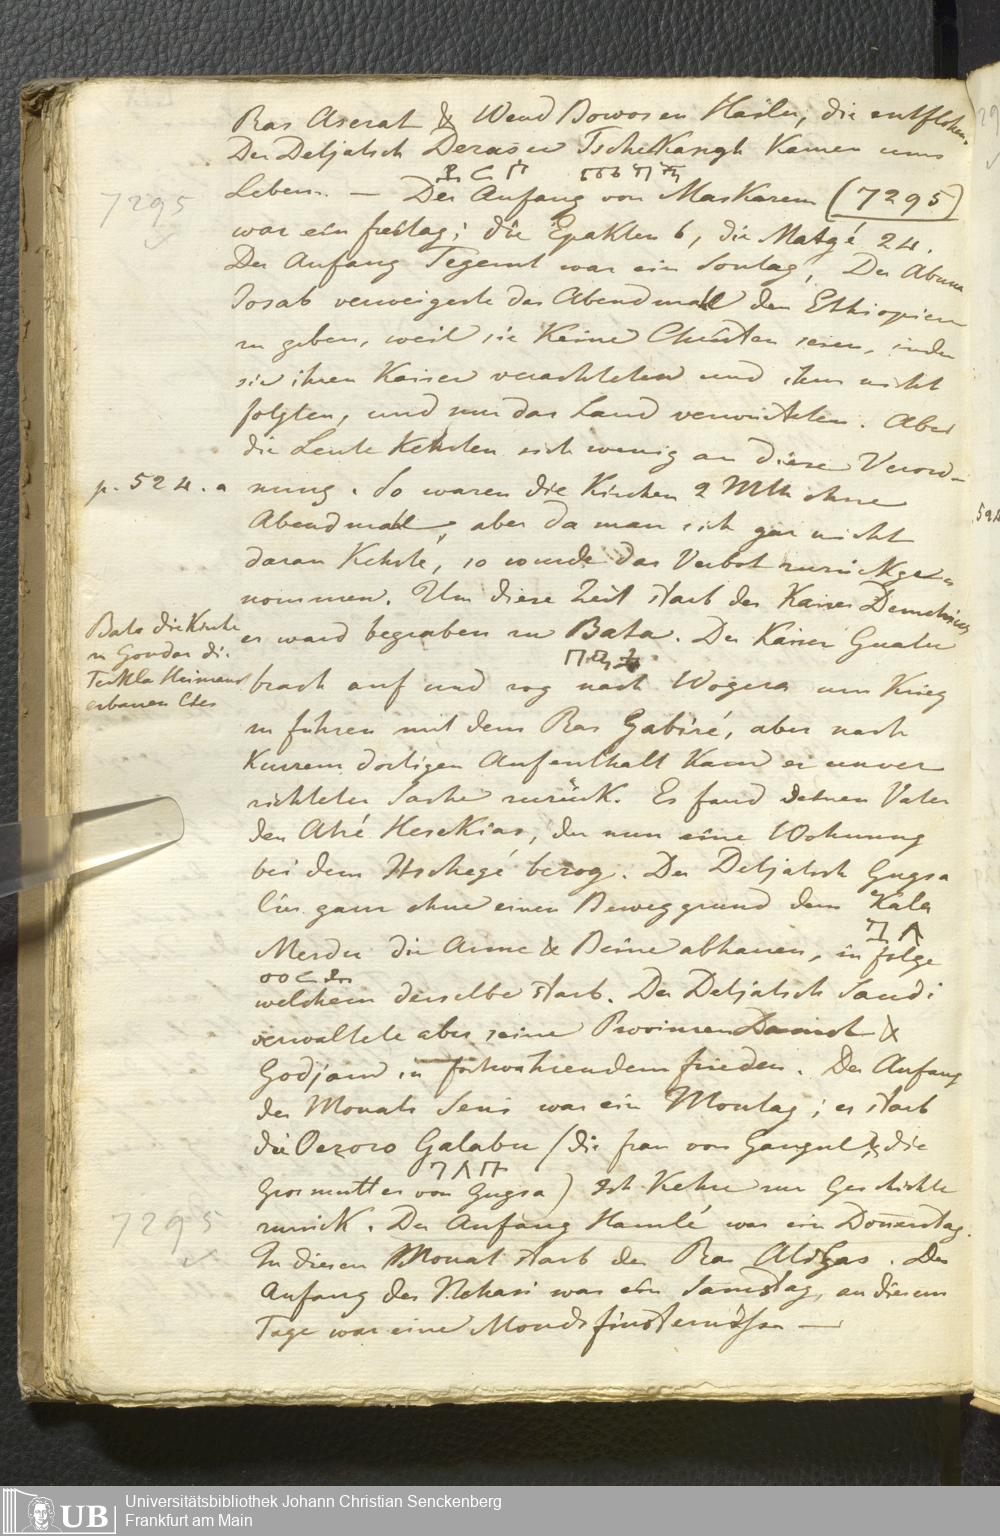 Ras Aserat & Wend Bowosen Hailu, die entflohen.
Der Detjatsch Deraso u TscheKasgh Kamen ums
7295
Leben. — Der Anfang von MasKarem (7295)
war ein freitag; die Epakten 6, die Matgé 24.
Der Anfang Tegemt war ein Sontag, Der Abuna
Josab verweigerte das Abendmahl den Ethiopiern
zu geben, weil sie Keine Christen seien, indem
sie ihren Kaiser verachteten und ihm nicht
folgten, und nur das Land verwüsteten. Aber
die Leute Kehrten sich wenig an diese Verord-
p. 524. a
nung. So waren die Kirchen 2 Mth ohne
Abendmahl, aber da man sich gar nicht
daran Kehrte, so wurde das Verbot zurückge-
nommen. Um diese Zeit starb der Kaiser Demetrius
er ward begraben zu Bata. Der Kaiser Gualu
Bata die Kirche
zu Gondar di.
Tekla Heimanot
erbauen ließ
brach auf und zog nach Wogera um Krieg
zu führen mit dem Ras Gabiré, aber nach
Kurzem dortigen Aufenthalt Kam er unver
richteter Sache zurück. Es fand seinen Vater
den Atsé HeseKias, der nun eine Wohnung
bei dem Itschegé bezog. Der Detjatsch Gugsa
lies ganz ohne einen Beweggrund dem Kala
Merdu die Arme & Beine abhauen, in folge
welchem derselbe starb. Der Detjatsch Saudi
verwaltete aber seine Provinzen Damot &
Godjam in fortwährendem frieden. Der Anfang
des Monats Seni war ein Montag; es starb
die Oezoro Galabu (die frau von Gangul & die
Grosmutter von Gugsa) Ich Kehre zur Geschichte
7295
zurück. Der Anfang Hamlé war ein Donnerstag.
In diesem Monat starb der Ras AliGas. Der
Anfang des Nehasi war ein Samstag, an diesem
Tage war eine Mondsfinsterniss —
UB
Universitätsbibliothek Johann Christian Senckenberg
Frankfurt am Main